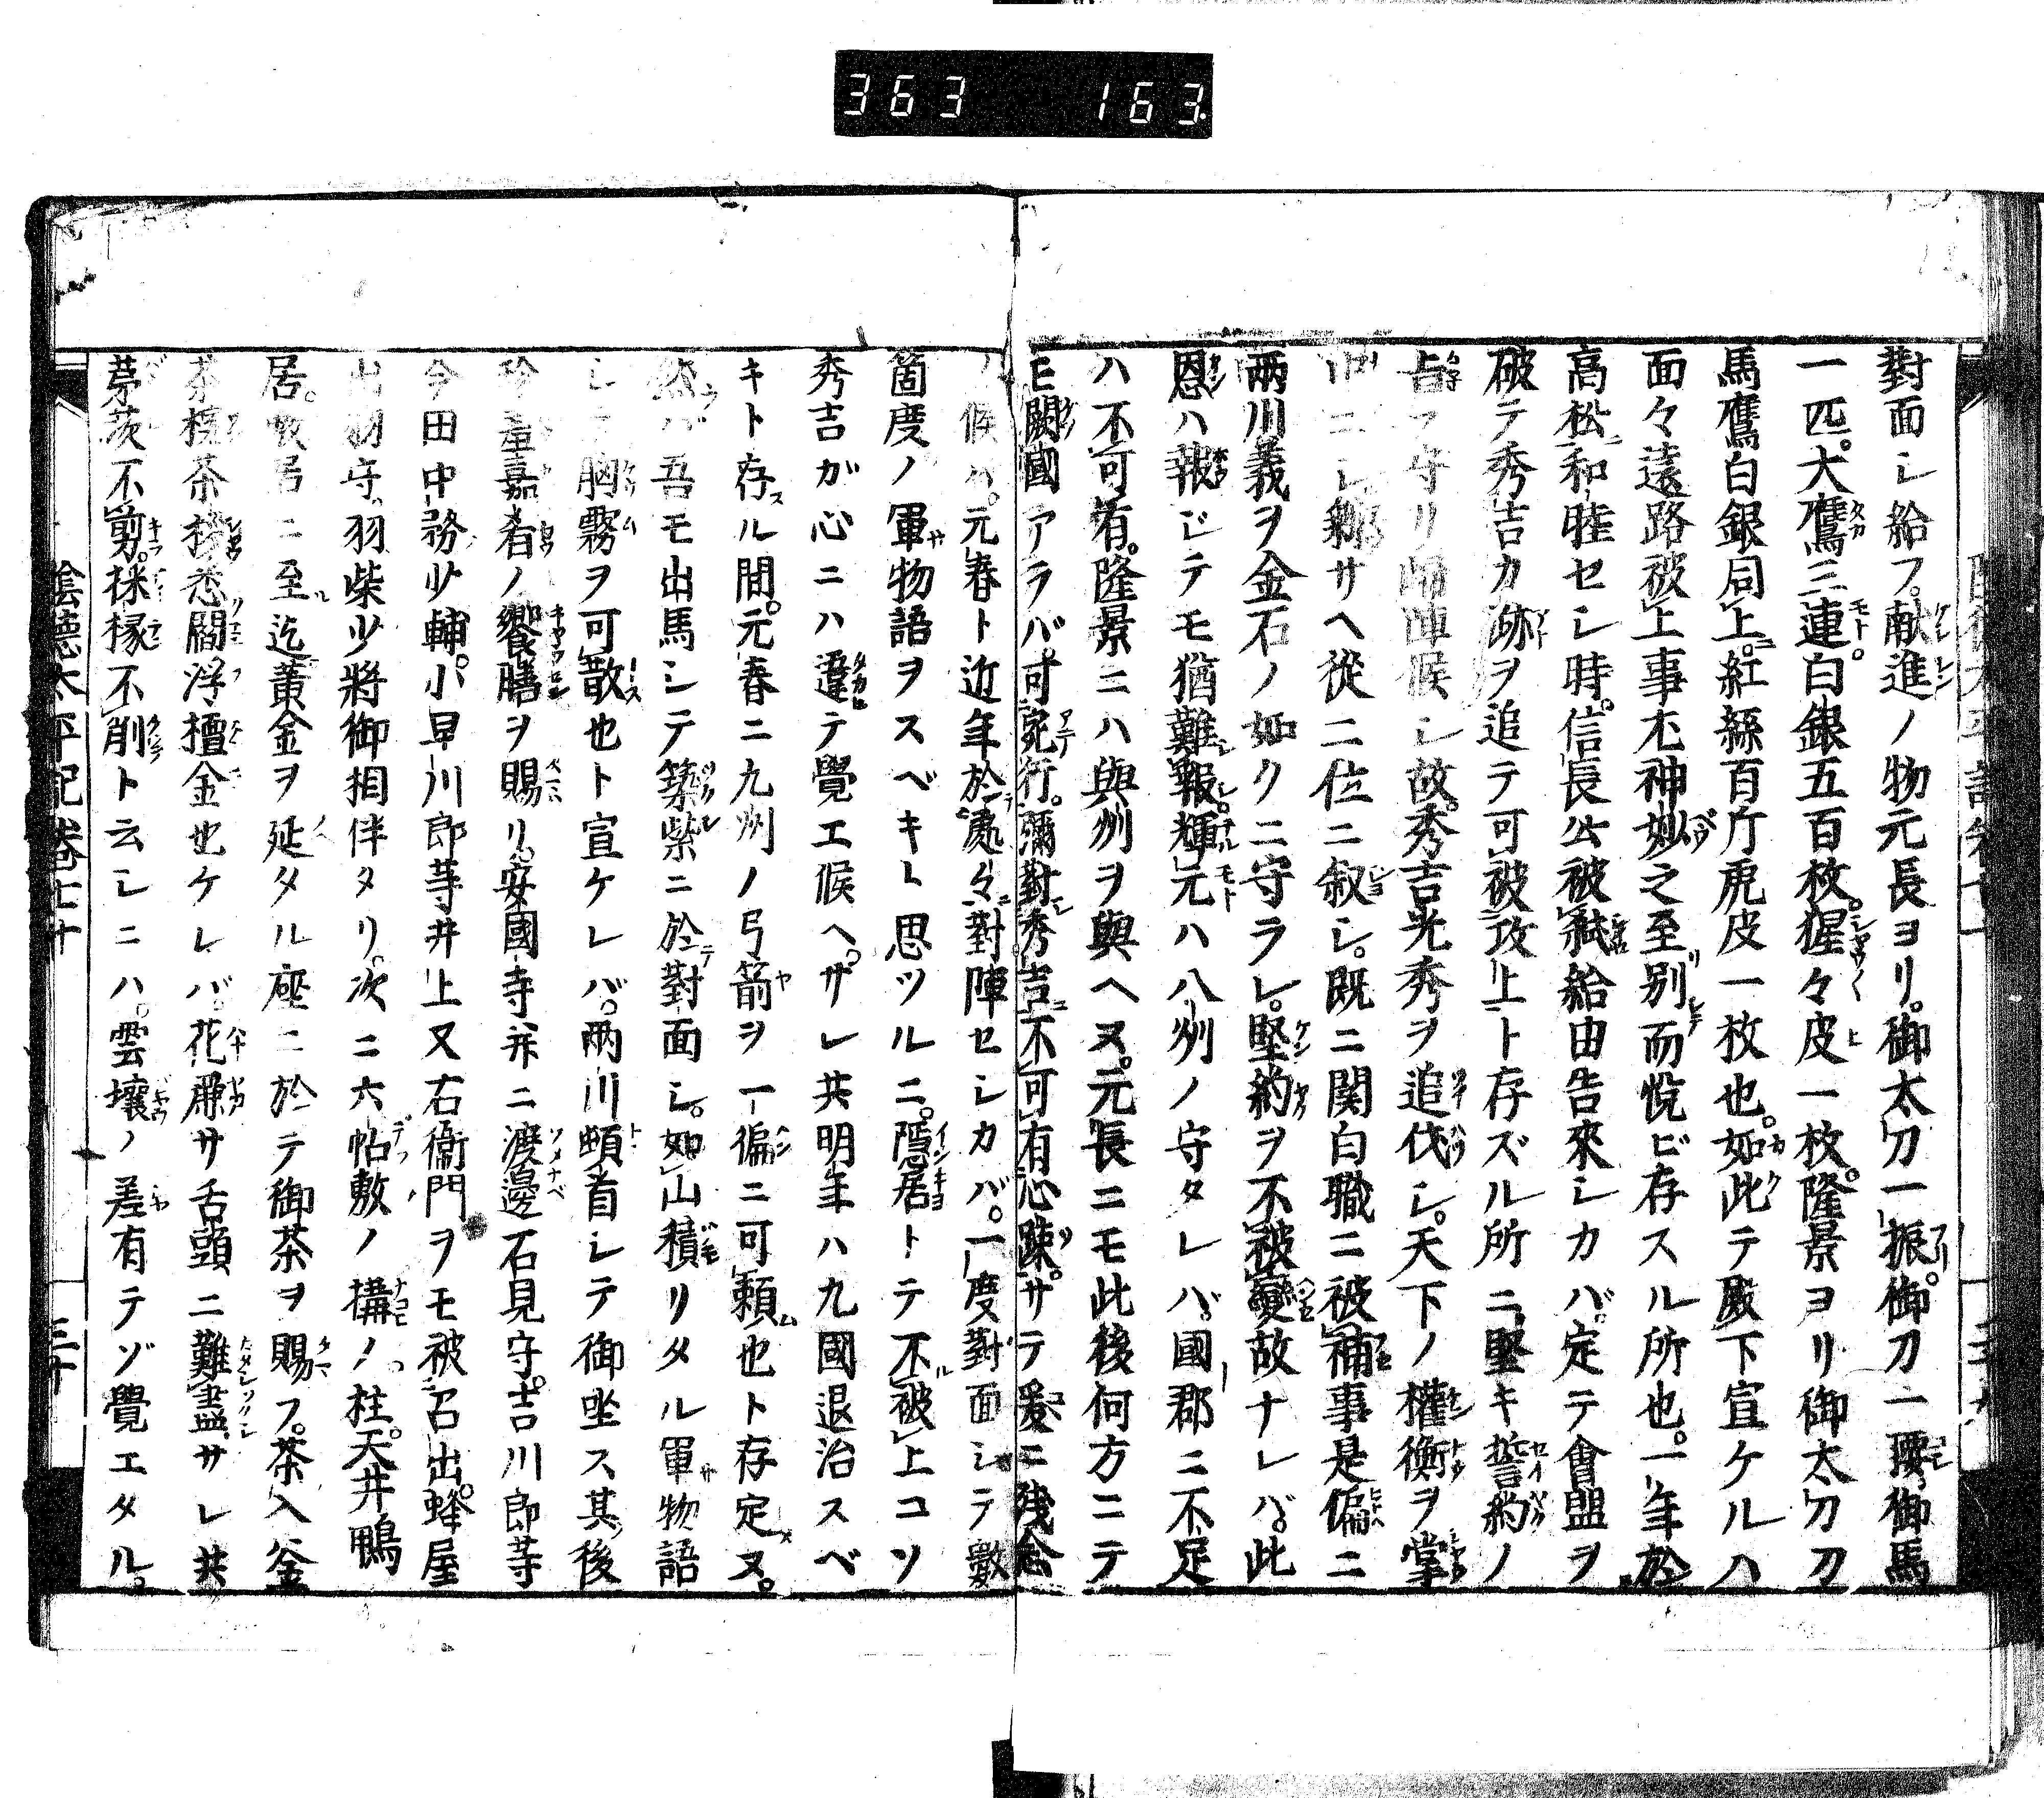 363 163
對面シ給フ。献進ノ物元長ヨリ。御太刀一振。御刀一腰。御馬
一匹。大鷹三連。白銀五百枚。猩々皮一枚。隆景ヨリ御太刀刀
馬鷹白銀同上。紅絲百斤虎皮一枚也。如此テ殿下宣ケルハ
面々遠路被上事尤神妙之至別而悦ビ存スル所也。一年於
高松和睦セシ時。信長公被弑給由告來シカバ。定テ會盟ヲ
破テ秀吉カ跡ヲ追テ可被攻上ト存ズル所ニ。堅キ誓約ノ
旨ヲ守リ歸陣候シ故。秀吉光秀ヲ追伐シ。天下ノ權衡ヲ掌
中ニシ剰サヘ從二位ニ叙シ。既ニ関白職ニ被補事是偏ニ
兩川義ヲ金石ノ如クニ守ラレ。堅約ヲ不被變故ナレバ。此
恩ハ報ジテモ猶難報。輝元ハ八州ノ守タレバ。國郡ニ不足
ハ不可有。隆景ニハ與州ヲ與ヘヌ。元長ニモ此後何方ニテ
モ闕國アラバ。可宛行。彌對秀吉不可有心疎。サテ爰ニ殘念
ノ候ハ。元春ト近年於處々對陣セシカバ。一度對面シテ數
箇度ノ軍物語ヲスベキト思ツルニ。隱居トテ不被上コソ
秀吉ガ心ニハ違テ覺エ候ヘ。サレ共明年ハ九國退治スベ
キト存ズル間。元春ニ九州ノ弓箭ヲ一偏ニ可頼也ト存定ヌ。
然バ吾モ出馬シテ築紫ニ於テ對面シ。如山積リタル軍物語
シテ胸霧ヲ可散也ト宣ケレバ。兩川頓首シテ御坐ス其後
珍產嘉肴ノ饗膳ヲ賜リ。安國寺并ニ渡邊石見守。吉川郎等
今田中務少輔。小早川郎等井上又右衞門ヲモ被召出。蜂屋
出羽守。羽柴少將御相伴タリ。次ニ六帖敷ノ構ノ。柱。天井鴨
居。敷居ニ至迄黄金ヲ延タル座ニ於テ御茶ヲ賜フ。茶入釜
茶椀茶杓悉閻浮檀金也ケレバ。花麗サ舌頭ニ難盡。サレ共
茅茨不剪。採椽不削ト云シニハ。雲壤ノ差有テゾ覺エタル。
陰徳太平記卷七十
三十